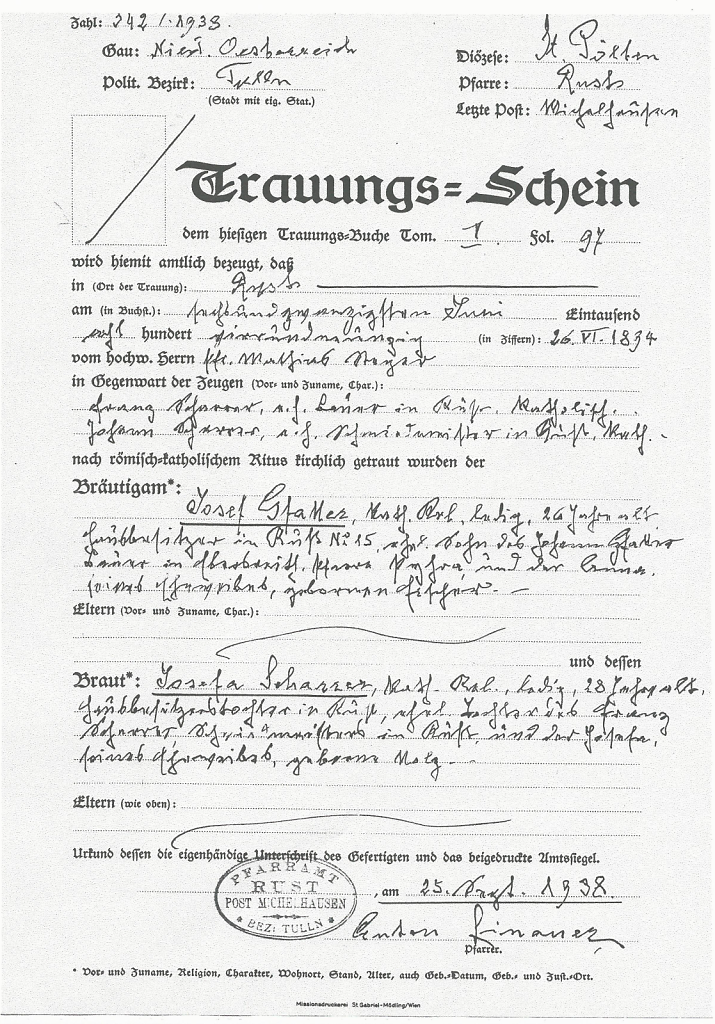 Zahl: 342 / 1938.
Gau: Nied. Oesterreich
Diözese: St. Pölten
Polit. Bezirk: Tulln
Pfarre: Rust
(Stadt mit eig. Stat.)
Letzte Post: Michelhausen
Trauungs=Schein
dem hiesigen Trauungs=Buche Tom. I Fol. 97
wird hiemit amtlich bezeugt, daß
in (Ort der Trauung): Rust
am (in Buchst.): sechsundzwanzigsten Juni Eintausend
acht hundert vierundneunzig (in Ziffern): 26. VI. 1894
vom hochw. Herrn Pfr. Mathias
in Gegenwart der Zeugen (Vor= und Zuname, Char.):
Franz Scharrer, Bauer in Rust, Katholisch.
Johann Scharrer, Schmiedmeister in Rust, Kath.
nach römisch=katholischem Ritus kirchlich getraut wurden der
Bräutigam*:
Josef Gfatter, Kath. Rel., ledig, 26 Jahre alt
Hausbesitzer in Rust No 15, ehel. Sohn des Johann Gfatter
Bauer in Pfarre Pyhra und der Anna,
seines Eheweibes, geborenen Fischer. -
Eltern (Vor= und Zuname, Char.):
und dessen
Braut*: Josefa Scharrer, Kath. Rel., ledig, 28 Jahre alt,
Hausbesitzerstochter in Rust, ehel. Tochter des Franz
Scharrer Schmiedmeisters in Rust, und der Josefa,
seines Eheweibes, geborene
Eltern (wie oben):
Urkund dessen die eigenhändige Unterschrift des Gefertigten und das beigedruckte Amtssiegel.
PFARRAMT
RUST
POST MICHELHAUSEN
* BEZ: TULLN *
, am 25. Sept. 1938.
Anton
Pfarrer.
* Vor= und Zuname, Religion, Charakter, Wohnort, Stand, Alter, auch Geb.=Datum, Geb.= und Zust.=Ort.
Missionsdruckerei St. Gabriel-Mödling/Wien